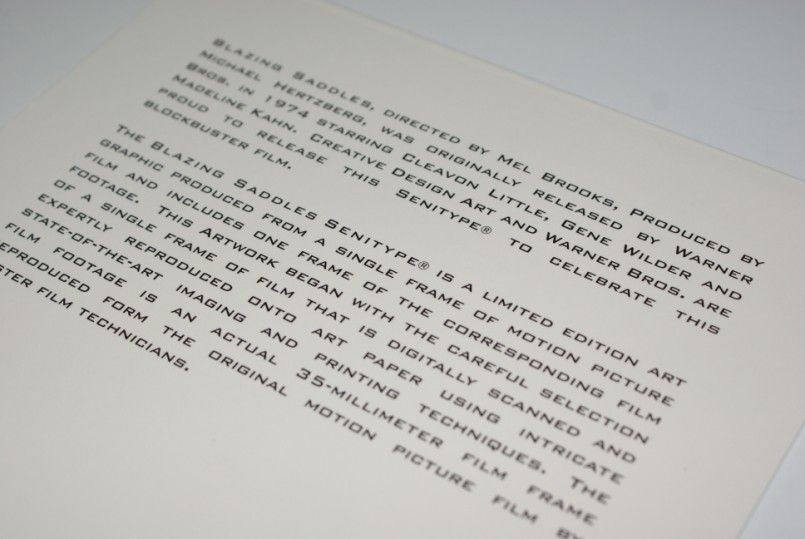 BLAZING SADDLES, DIRECTED BY MEL BROOKS, PRODUCED BY
MICHAEL HERTZBERG, WAS ORIGINALLY RELEASED BY WARNER
BROS. IN 1974 STARRING CLEAVON LITTLE, GENE WILDER AND
MADELINE KAHN. CREATIVE DESIGN ART AND WARNER BROS. ARE
PROUD TO RELEASE THIS SENITYPE® TO CELEBRATE THIS
BLOCKBUSTER FILM.
THE BLAZING SADDLES SENITYPE® IS A LIMITED EDITION ART
GRAPHIC PRODUCED FROM A SINGLE FRAME OF MOTION PICTURE
FILM AND INCLUDES ONE FRAME OF THE CORRESPONDING FILM
FOOTAGE. THIS ARTWORK BEGAN WITH THE CAREFUL SELECTION
OF A SINGLE FRAME OF FILM THAT IS DIGITALLY SCANNED AND
EXPERTLY REPRODUCED ONTO ART PAPER USING INTRICATE
STATE-OF-THE-ART IMAGING AND PRINTING TECHNIQUES. THE
FILM FOOTAGE IS AN ACTUAL 35-MILLIMETER FILM FRAME
EPRODUCED FORM THE ORIGINAL MOTION PICTURE FILM BY
STER FILM TECHNICIANS.